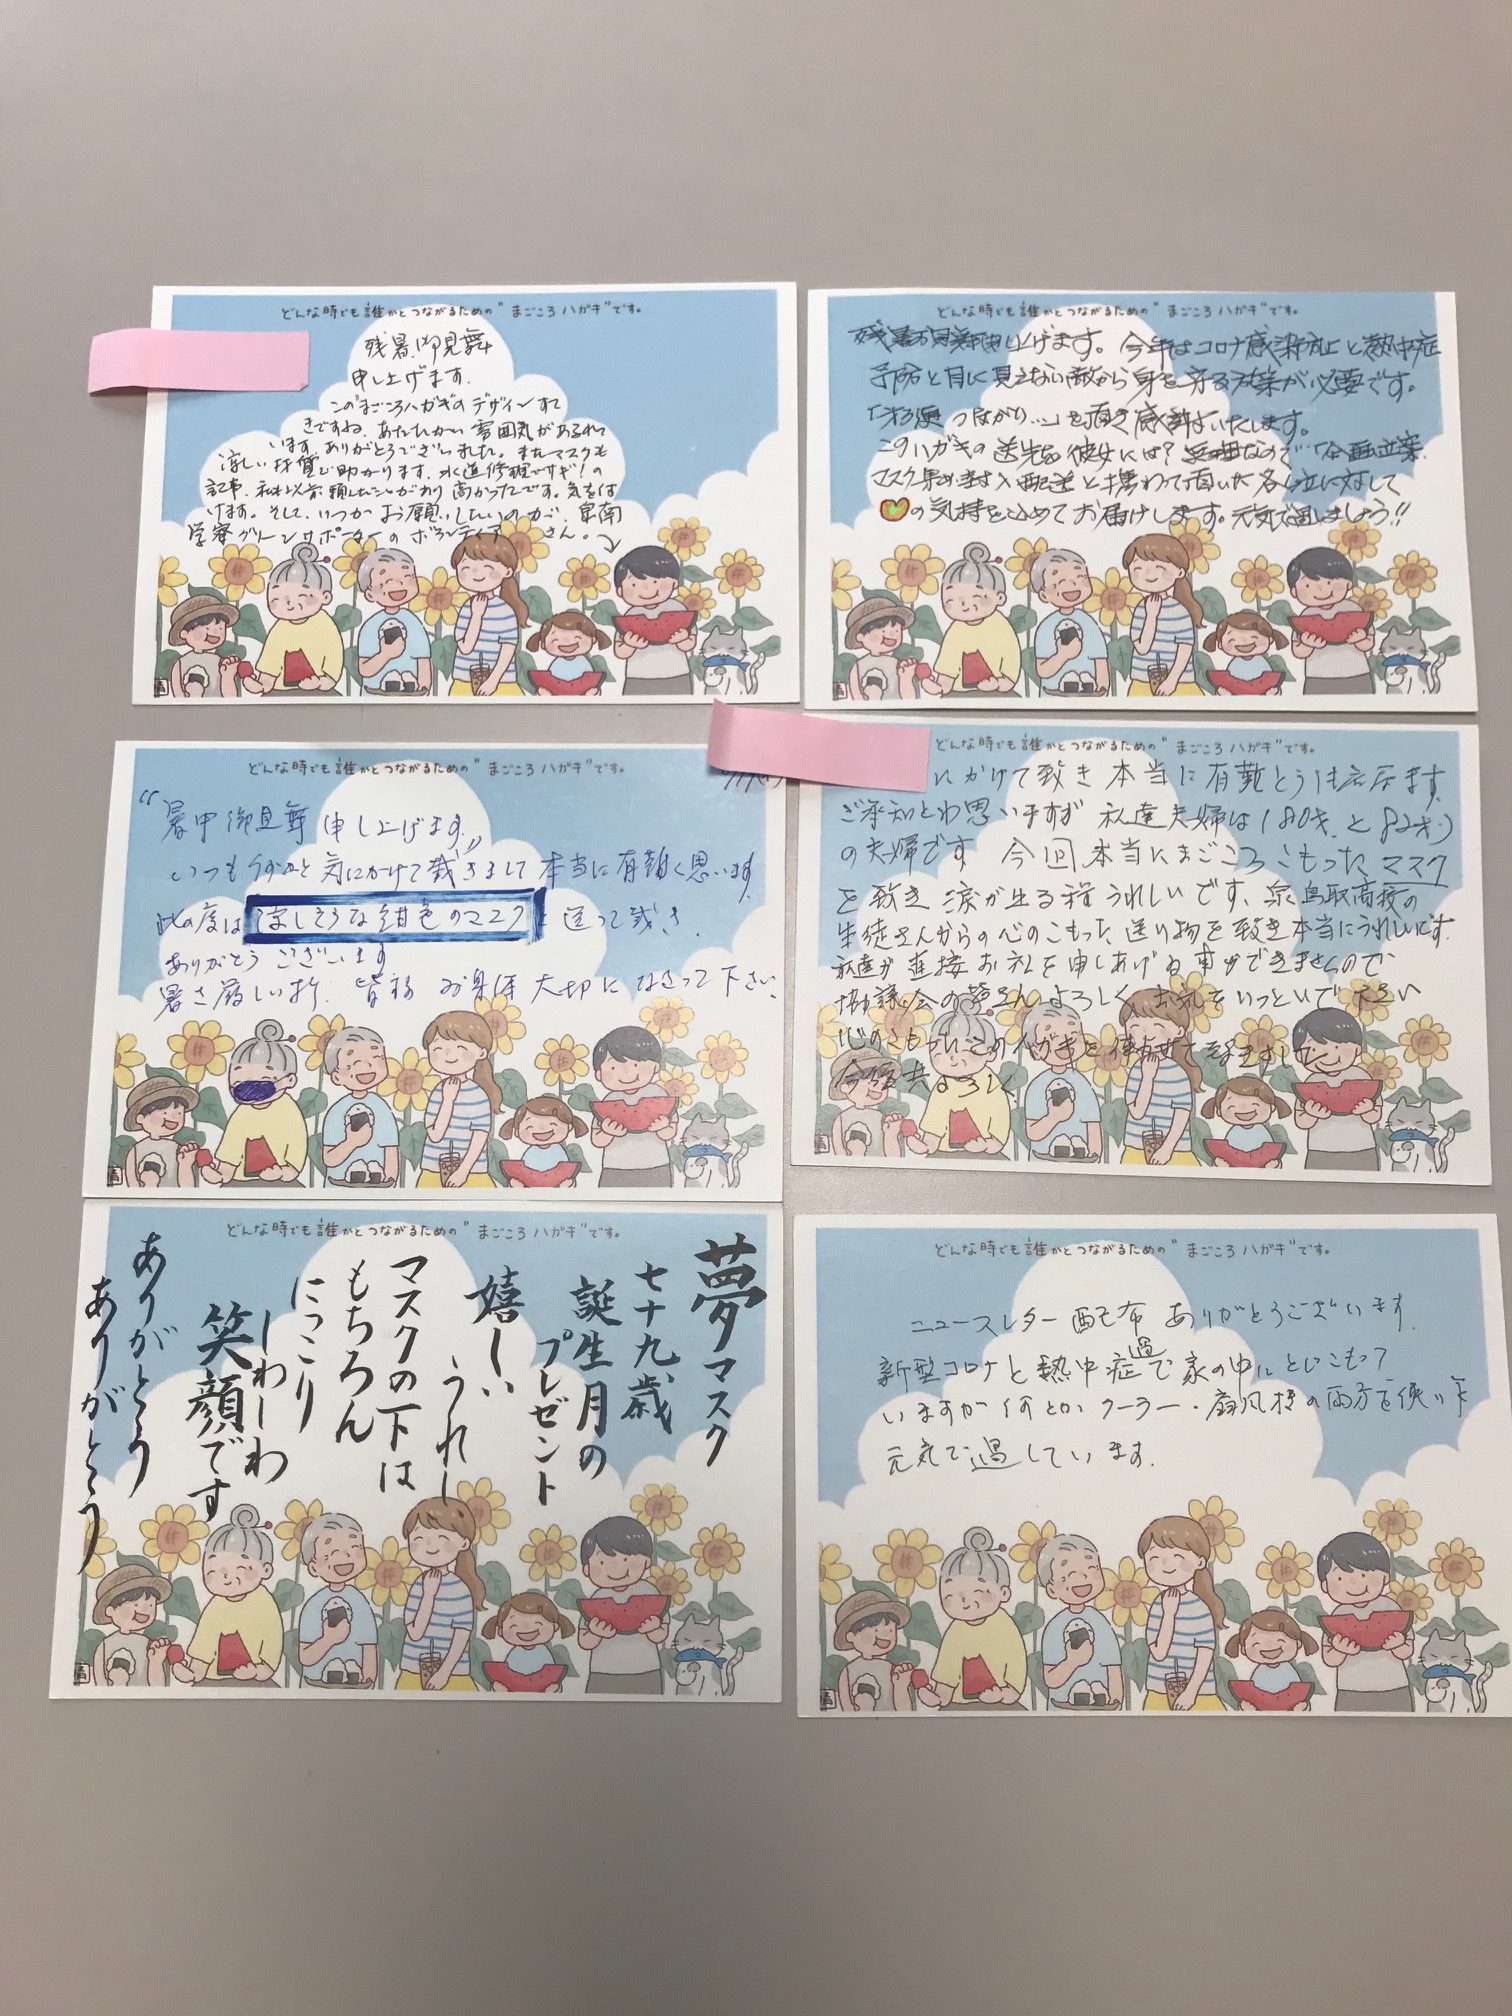 どんな時でも誰かとつながるための"まごころハガキ"です。
残暑御見舞
申し上げます。
このまごころハガキのデザインすて
きですね、あたたかい雰囲気があふれて
います。ありがとうございました。またマスクも
涼しい材質で助かります。水道修理ですぎ!の
記事、私も以前頼んだことがあり高かったです。気をつけ
けます。そして、いつかお願いしたいのが、泉南
学寮グリーンサポーターのボランティア さん。
どんな時でも誰かとつながるための"まごころハガキ"です。
残暑お見舞申し上げます。今年はコロナ感染防止と熱中症
予防と目に見えない敵から身を守る対策が必要です。
つながり…」を頂き感謝いたします。
このハガキの送先を彼女には? なので…「企画立案、
マスク集め 封入 配送と携わって頂いた各位に対して
の気持を込めてお届けします。元気で過しましょう!!
どんな時でも誰かとつながるための"まごころハガキ"です。
"暑中御見舞申し上げます。"
いつも 気にかけて戴きまして本当に有難く思います。
此の度は涼しそうな紺色のマスクを送って戴き、
ありがとうございます
暑さ厳しい折、皆様お身体大切になさって下さい。
どんな時でも誰かとつながるための"まごころハガキ"です。
にかけて致き本当に有難とう
ご承知とわ思いますが 私達夫婦は(80才と82才)
の夫婦です 今回本当にまごころこもったマスク
を致き涙が出る程うれしいです、泉鳥取高校の
生徒さんからの心のこもった送り物を致き本当にうれしいです。
私達が直接お礼を申しあげる事ができませんので
協議会の皆さんよろしくお伝え
心のこもったこのハガキを 
今後共よろしく
どんな時でも誰かとつながるための"まごころハガキ"です。
夢マスク
七十九歳
誕生月の
プレゼント
嬉しい
うれしー
マスクの下は
もちろん
にっこり
しわーしわ
笑顔です
ありがとう
ありがとう
どんな時でも誰かとつながるための"まごころハガキ"です。
ニュースレター配布 ありがとうございます。
新型コロナと熱中症過で家の中にとじこもって
いますが何とかクーラー・扇風機の両方を使い
元気で過しています。